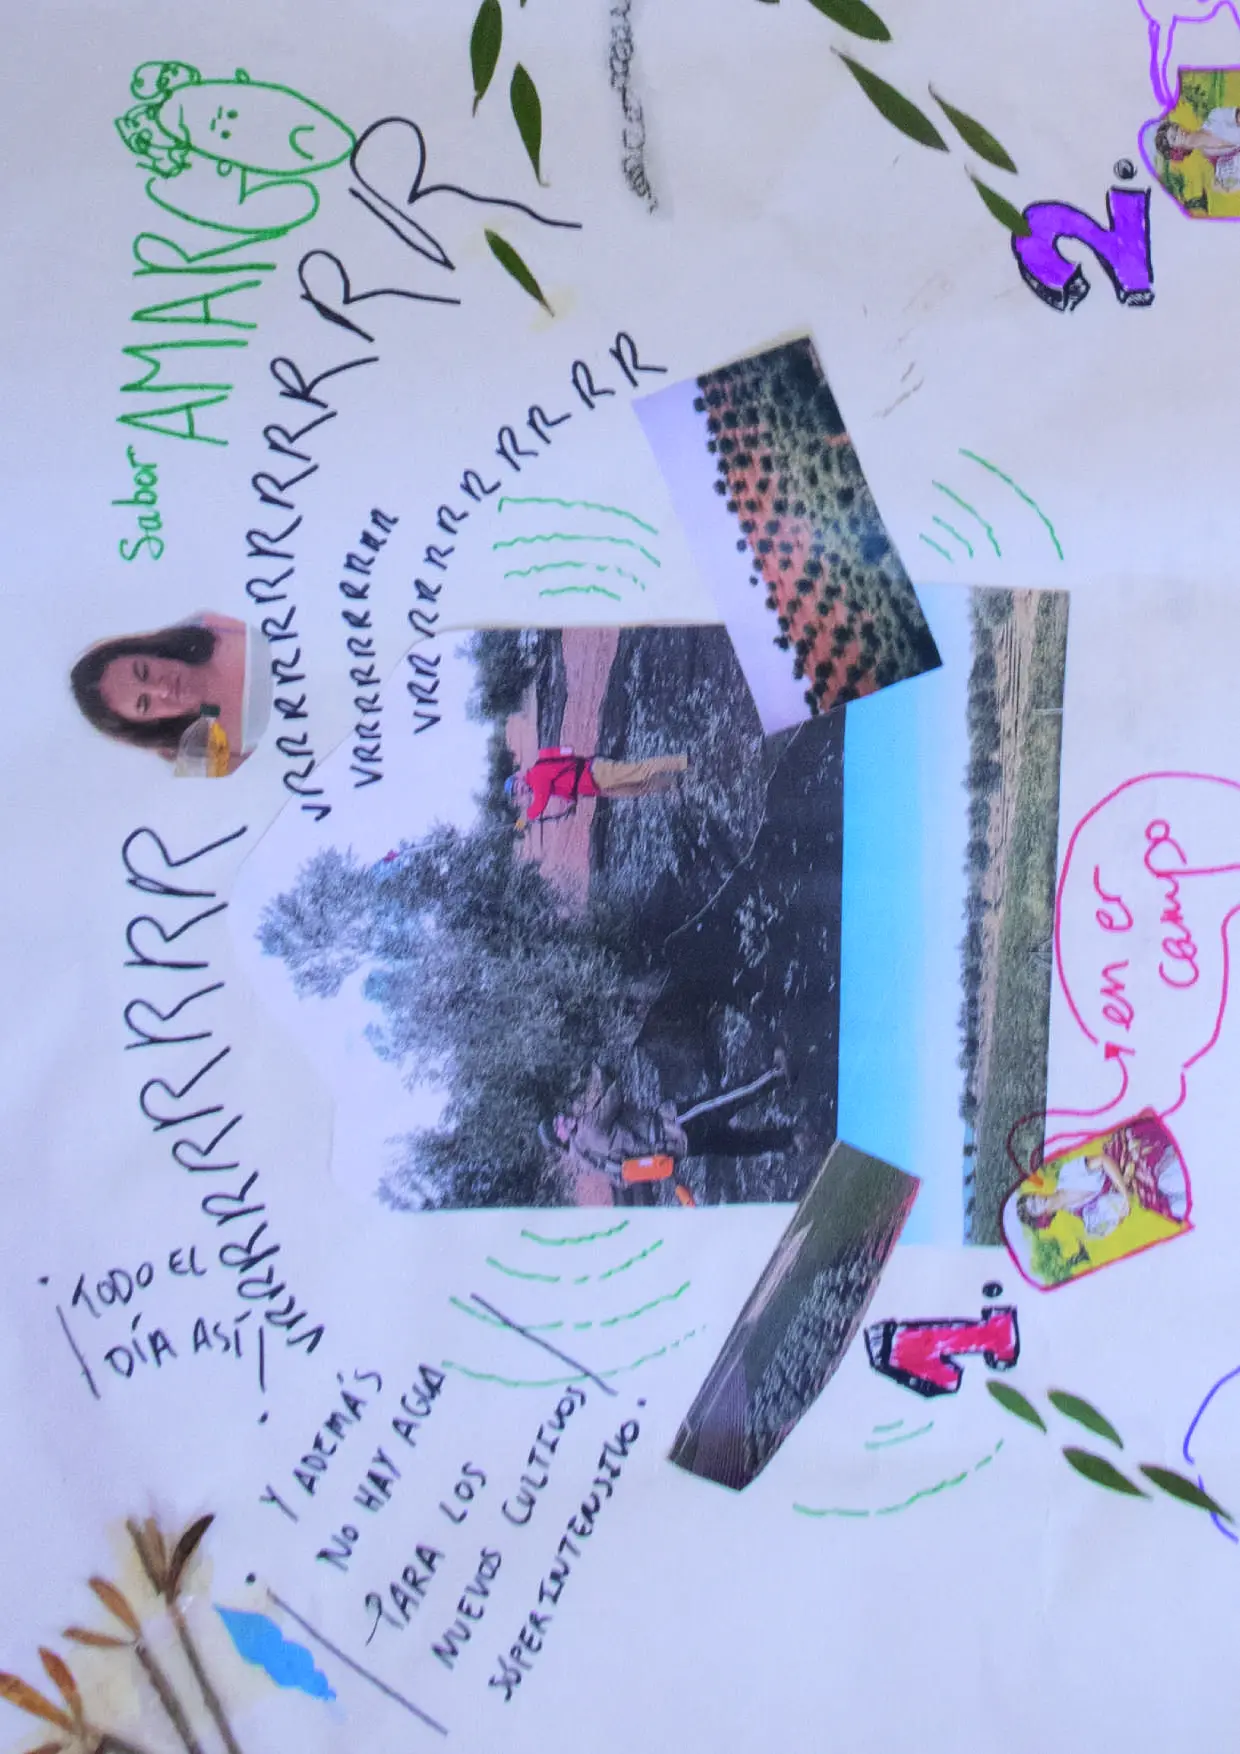 ¡TODO EL
DÍA ASÍ!
VRRRRRRRRR
Sabor
AMARGO
VRRRRRRRRRRRRR
VRRRRRRRRR
VRRRRRRRRRR
¡Y ADEMÁS
NO HAY AGUA
PARA LOS
NUEVOS CULTIVOS
SÚPERINTENSIVO!
1.
en er
campo
2.